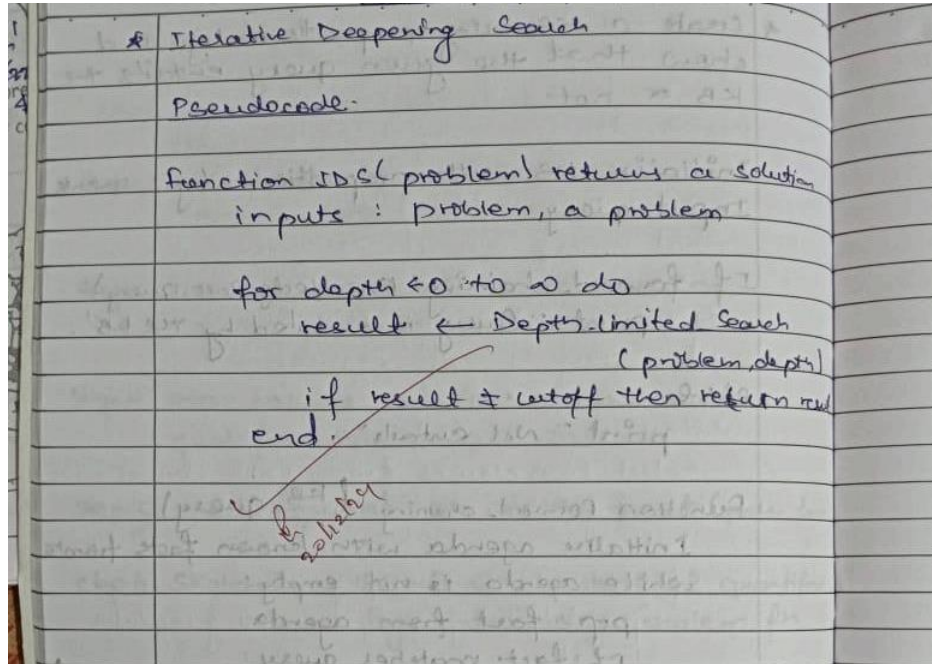 * Iterative Deepening Search
Pseudocode.
function IDS( problem) returns a solution
inputs : problem, a problem
for depth ← 0 to ∞ do
result ← Depth-limited Search
( problem, depth)
if result ≠ cutoff then return
end.
20/12/24